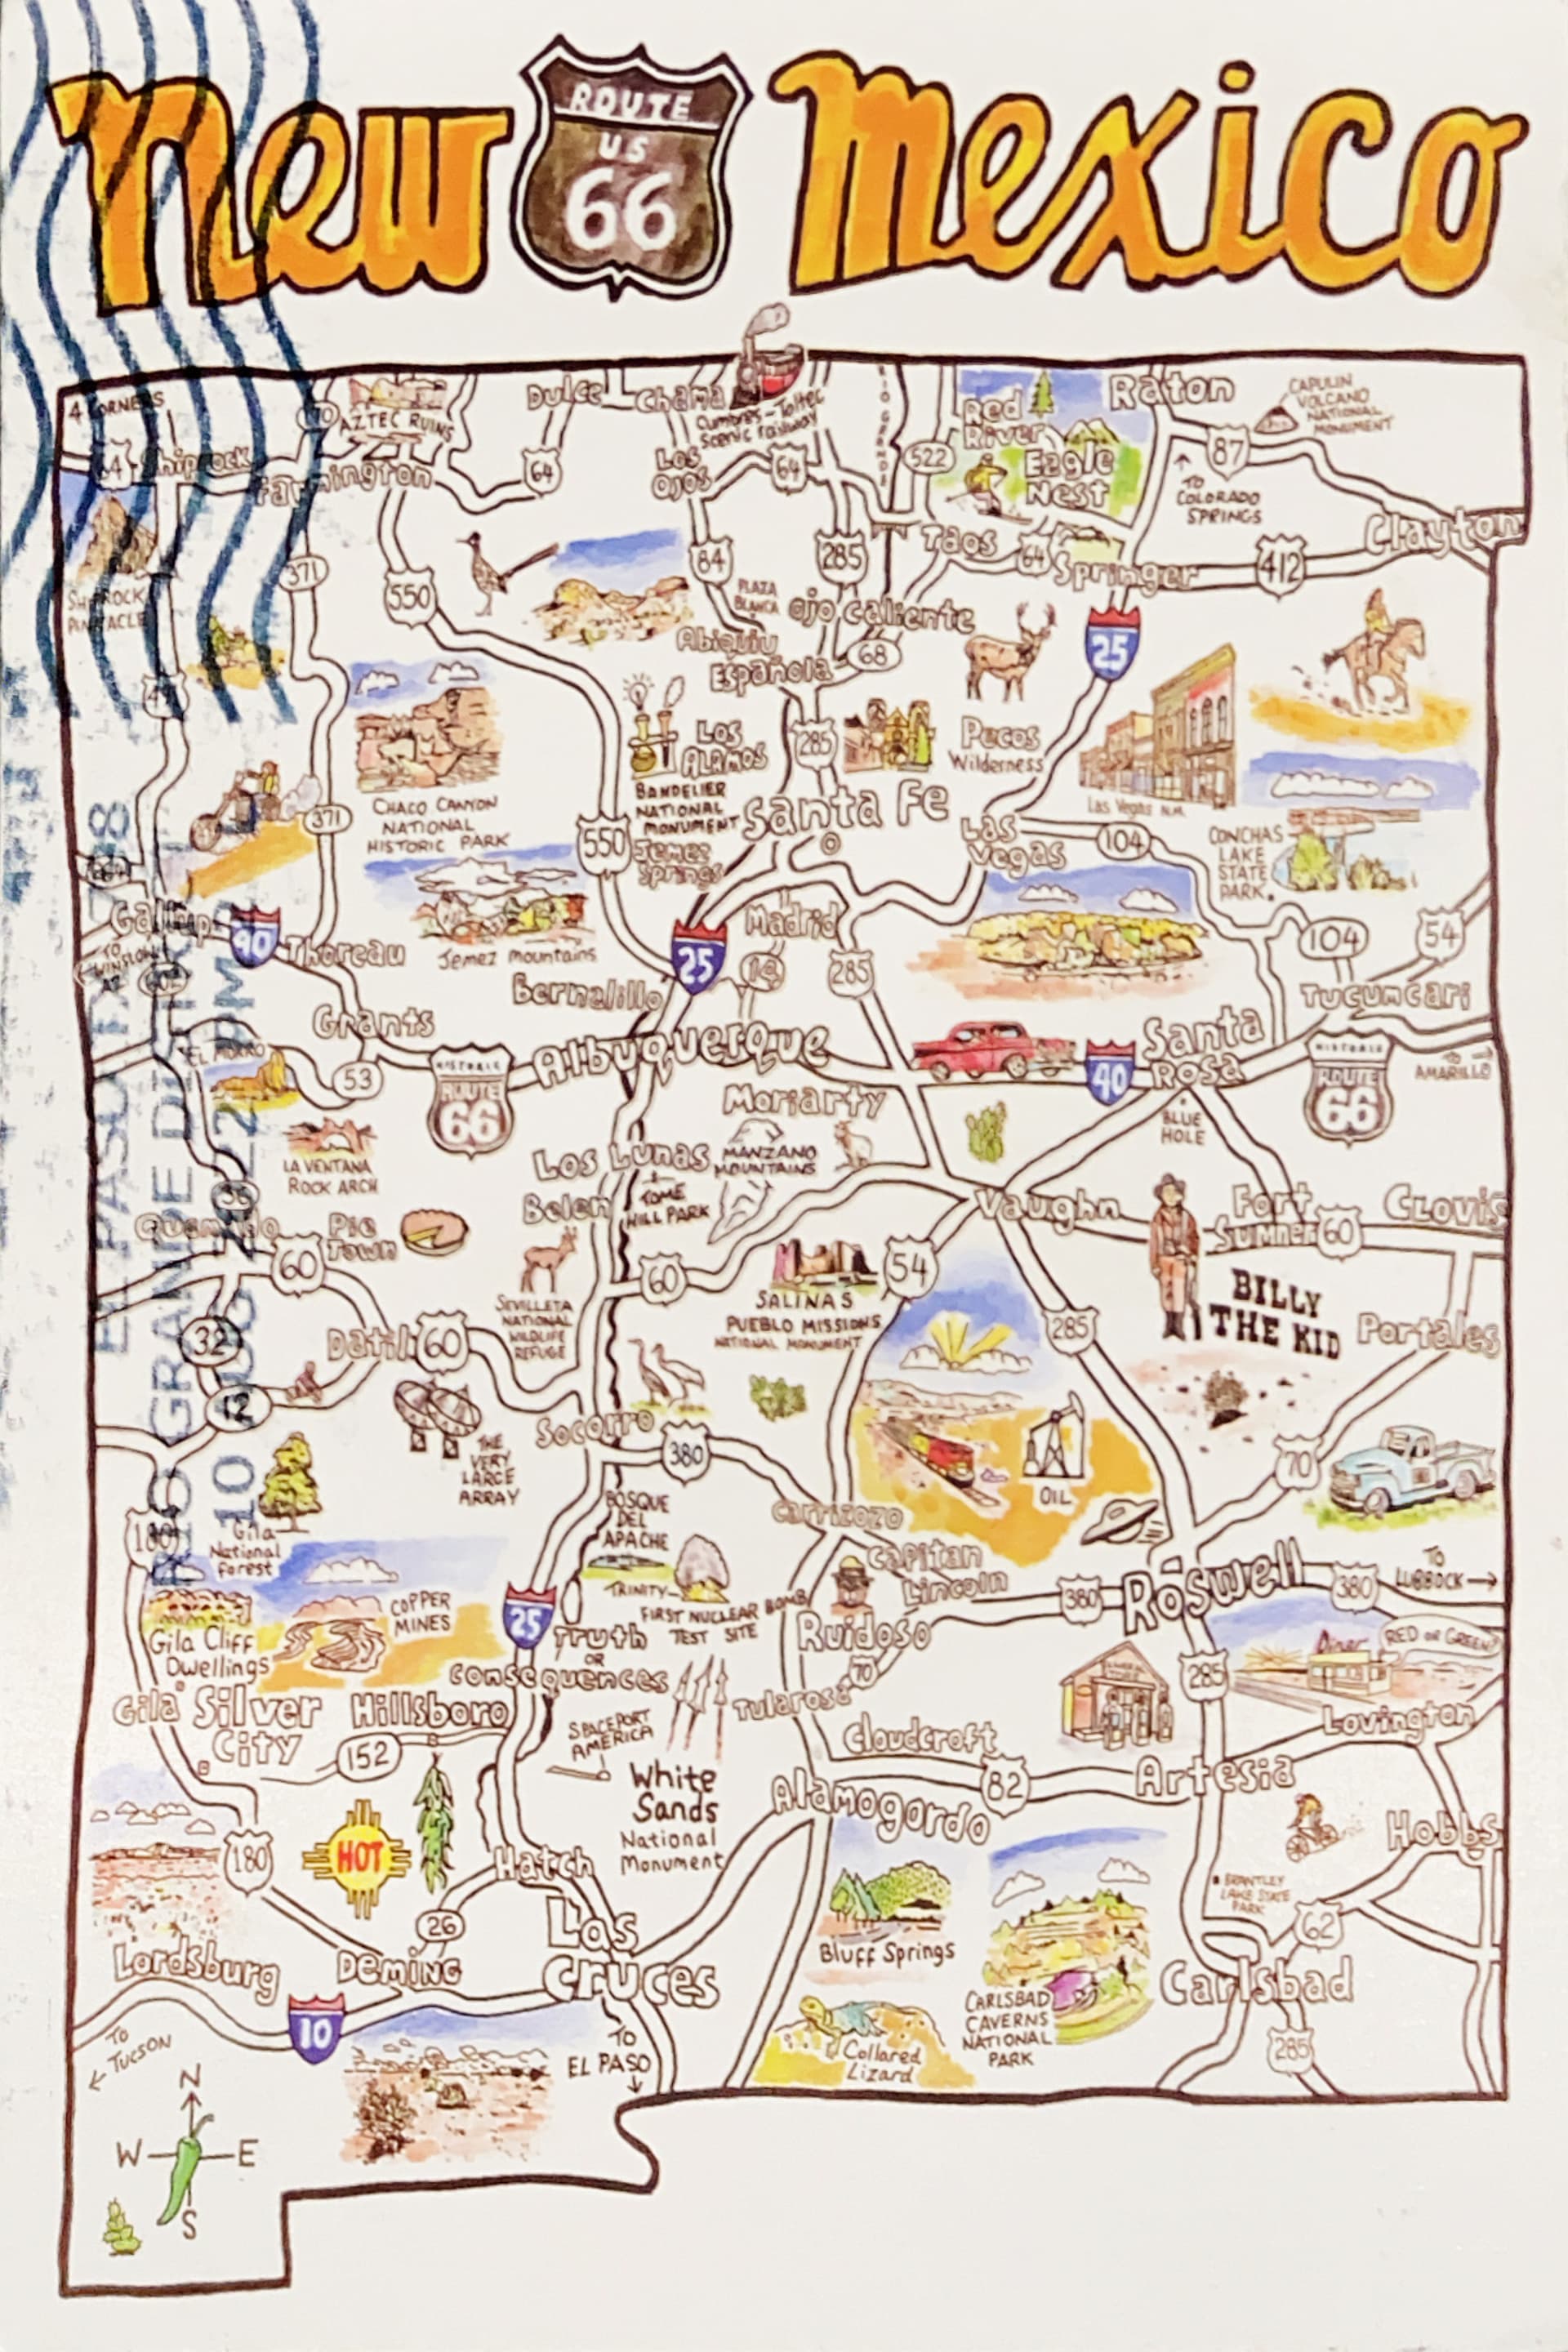 New
ROUTE
US
66
Mexico
4 CORNERS
AZTEC RUINS
Dulce
Chama
Cumbres-Toltec
Scenic railway
RIO GRANDE
Red
River
Eagle
Nest
Raton
CAPULIN
VOLCANO
NATIONAL
MONUMENT
64
Shiprock
Farmington
64
Los
Ojos
64
522
87
TO
COLORADO
SPRINGS
Clayton
SHIPROCK
PINNACLE
371
550
84
285
Taos
64
Springer
412
PLAZA
BLANCA
Ojo Caliente
Abiquiu
Española
68
25
CHACO CANYON
NATIONAL
HISTORIC PARK
371
LOS
ALAMOS
285
Pecos
Wilderness
BANDELIER
NATIONAL
MONUMENT
Santa Fe
Las Vegas N.M.
550
Jemez
Springs
Las
Vegas
104
CONCHAS
LAKE
STATE
PARK
Gallup
40
Thoreau
Jemez mountains
25
Madrid
14
285
104
54
TO
WINSLOW
AZ
602
Bernalillo
Tucumcari
Grants
Albuquerque
Santa
Rosa
40
EL MORRO
53
HISTORIC
ROUTE
66
HISTORIC
ROUTE
66
TO
AMARILLO
Moriarty
BLUE
HOLE
LA VENTANA
ROCK ARCH
Los Lunas
MANZANO
MOUNTAINS
36
Belen
TOME
HILL PARK
Vaughn
Fort
Sumner
60
Clovis
Quemado
Pie
Town
60
60
54
SEVILLETA
NATIONAL
WILDLIFE
REFUGE
SALINAS
PUEBLO MISSIONS
NATIONAL MONUMENT
BILLY
THE KID
285
Portales
32
Datil
60
12
THE
VERY
LARGE
ARRAY
Socorro
380
OIL
70
180
Gila
National
Forest
BOSQUE
DEL
APACHE
Carrizozo
Capitan
Lincoln
TRINITY
FIRST NUCLEAR BOMB
TEST SITE
380
Roswell
380
TO
LUBBOCK
Gila Cliff
Dwellings
COPPER
MINES
25
Truth
OR
Consequences
Ruidoso
70
Tularosa
285
Diner
RED OR GREEN?
Gila
Silver
City
Hillsboro
152
SPACEPORT
AMERICA
Cloudcroft
Lovington
White
Sands
National
Monument
Alamogordo
82
Artesia
180
HOT
Hatch
26
Hobbs
BRANTLEY
LAKE STATE
PARK
62
Bluff Springs
Lordsburg
Deming
Las
Cruces
CARLSBAD
CAVERNS
NATIONAL
PARK
Carlsbad
10
TO
TUCSON
TO
EL PASO
Collared
Lizard
285
N
W
E
S
EL PASO TX
RIO GRANDE DISTRICT